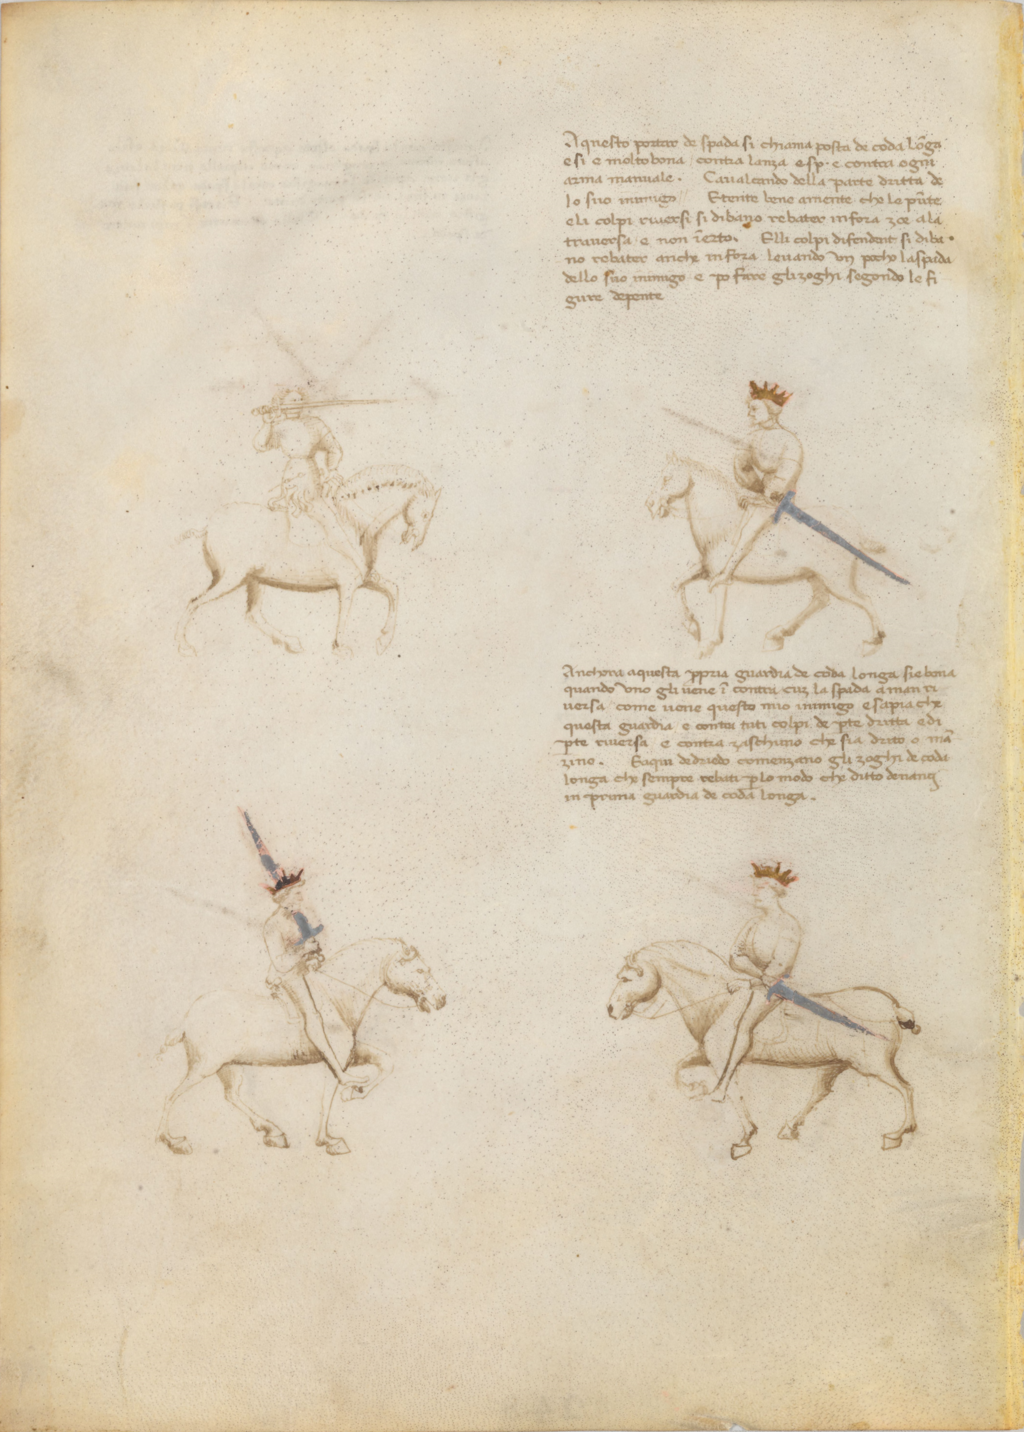 Aquesto portar de spada si chiama posta de coda lõga
e si e molto bona contra lanza e sp. e contra ogni
arma manuale. Cavalcando della parte dritta de
lo suo inimigo // E tente bene a mente che le pũte
e li colpi riversi si dibano rebater in fora zoe a la
traversa e non ĩ erto. E lli colpi difendent si diba
no rebater anche in fora levando un pocho la spada
dello suo inimigo e po fare gli zoghi segondo le fi
gure depente
Anchora aquesta ppria guardia de coda longa si e bona
quando uno gli vene ĩ contra cuz la spada a man ri
versa come vene questo mio inimigo e sapia che
questa guardia e contra tuti colpi de pte dritta e di
pte riversa e contra zaschuno che sia drito o mã
zino. E aqui dedriedo comenzano gli zoghi de coda
longa che sempre rebati p lo modo che ditto denanci
in prima guardia de coda longa.